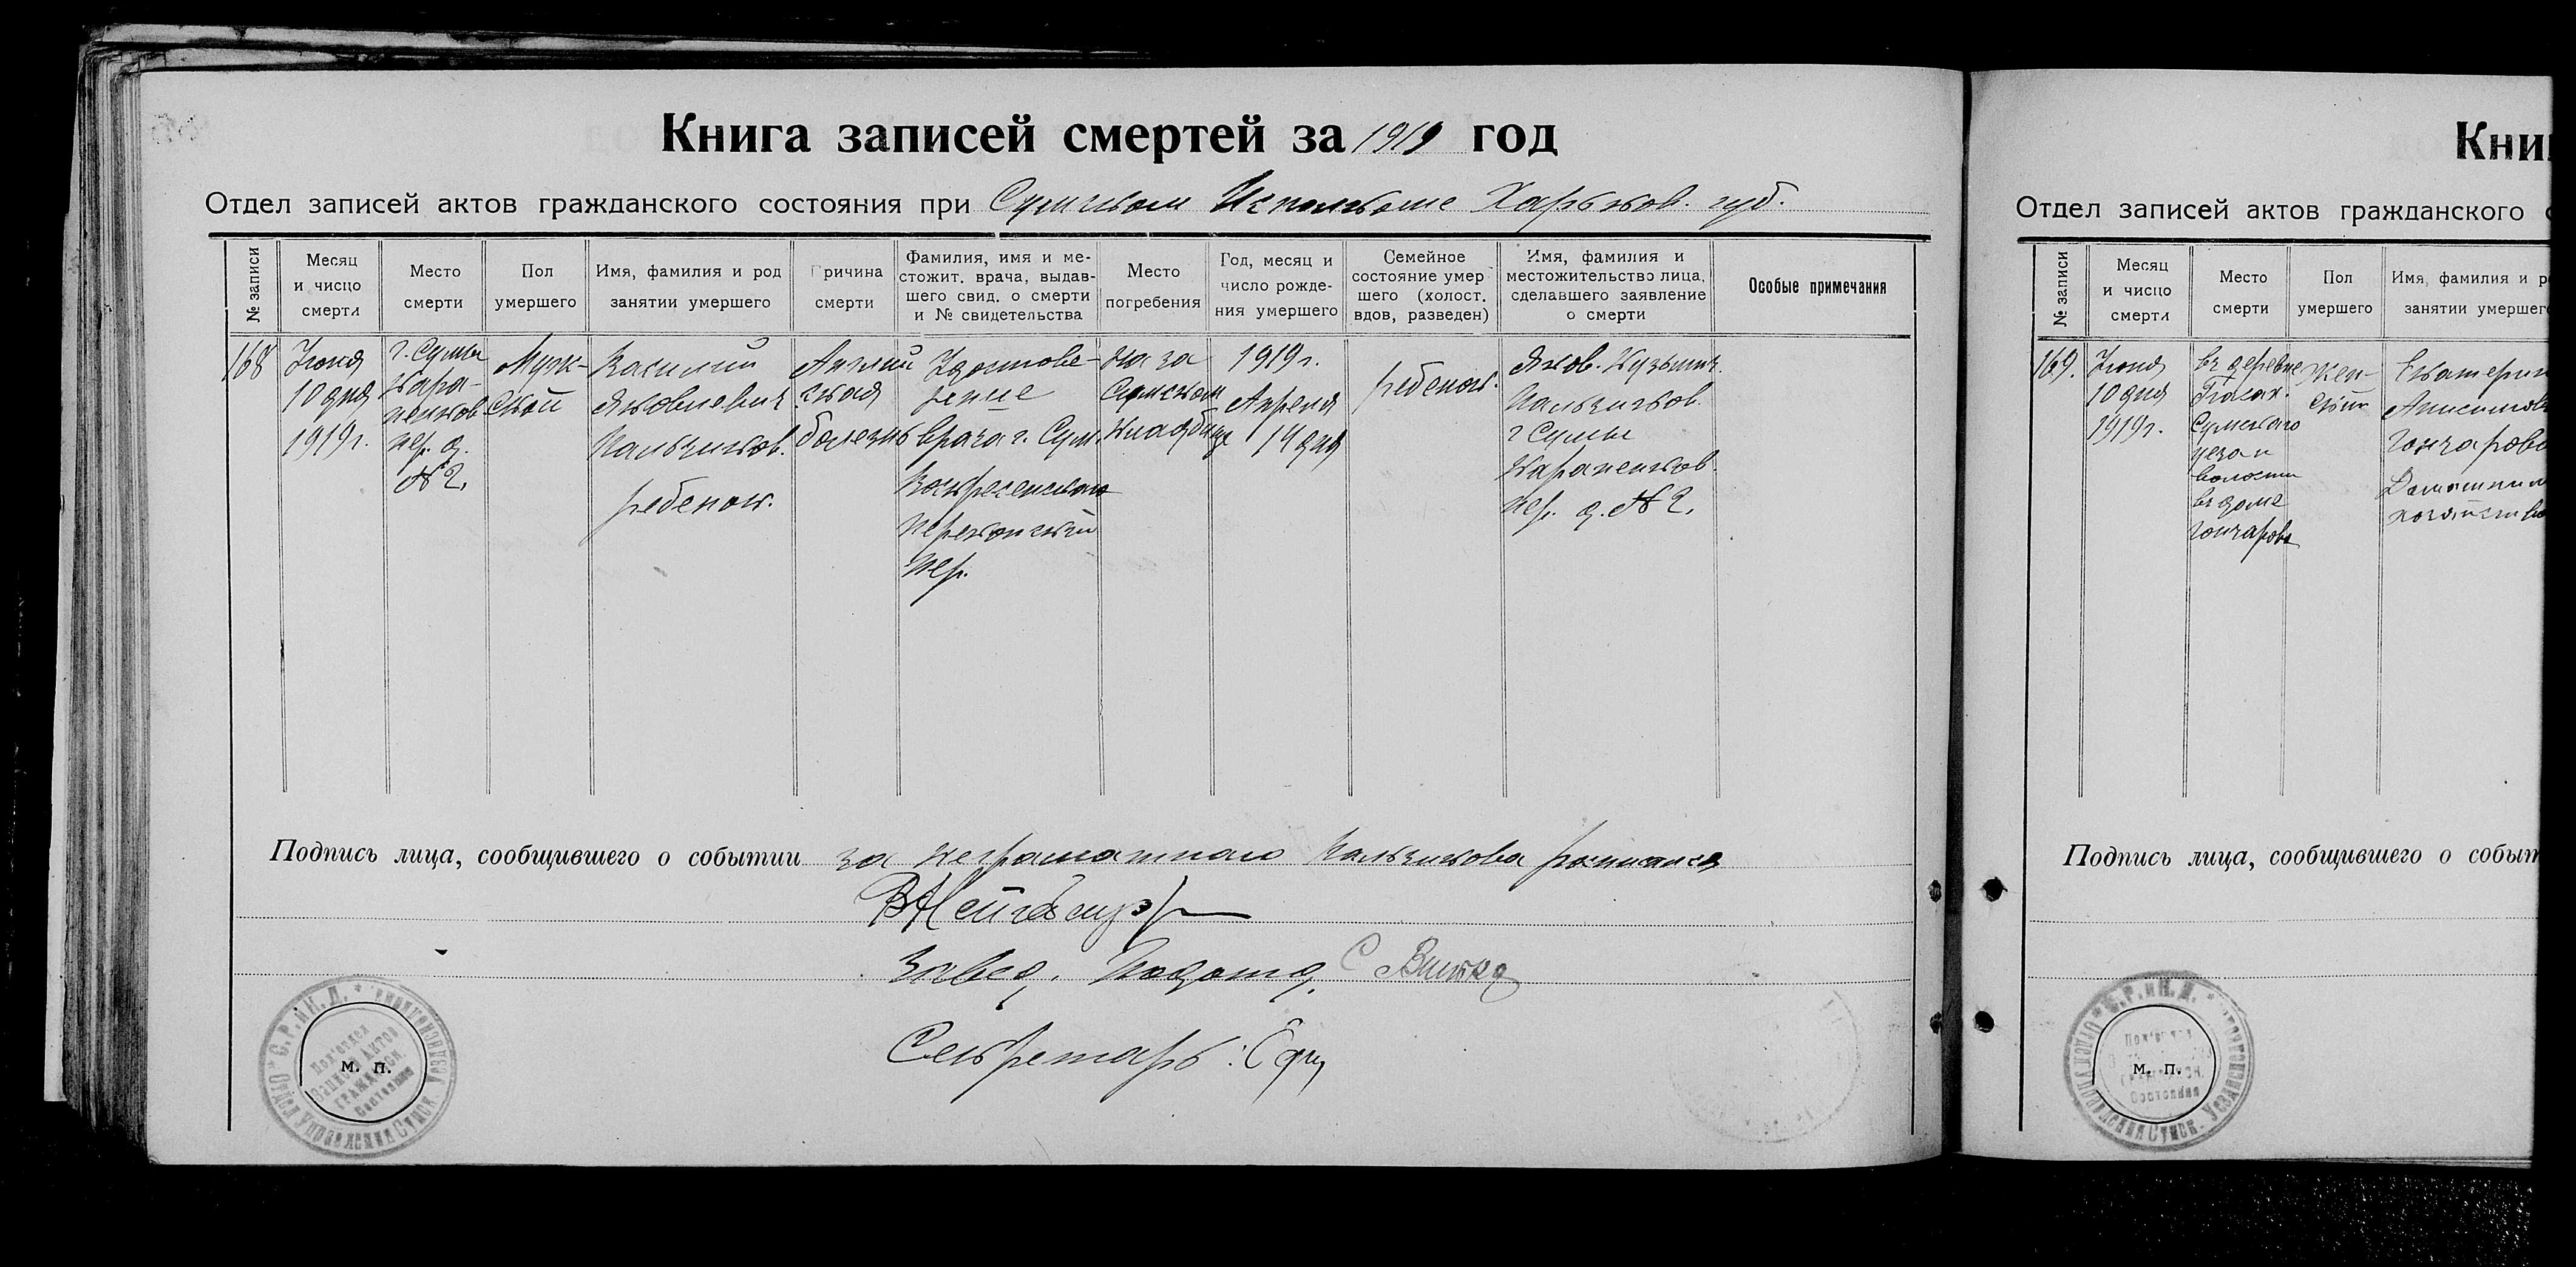 Книга записей смертей за 1919 год
Отдел записей актов гражданского состояния при Сумском Исполкоме Харьков. губ.
№ записи
Месяц
и число
смерти
Место
смерти
Пол
умершего
Имя, фамилия и род
занятии умершего
Причина
смерти
Фамилия, имя и ме-
стожит. врача, выдав-
шего свид. о смерти
и № свидетельства
Место
погребения
Год, месяц и
число рожде-
ния умершего
Семейное
состояние умер
шего (холост.
вдов, разведен)
Имя, фамилия и
местожительство лица,
сделавшего заявление
о смерти
Особые примечания
168
Июня
10 дня
1919 г.
г. Сумы
пер. д.
№ 2.
Муж-
ской
Василий
Яковлевич
Пальчиков.
ребенок.
Англий
ская
болезнь
Удостове-
рение
врача г. Сум.
Воскресенского
пер.
На за
Сумском
кладбище
1919 г.
Апреля
14 дня
ребенок.
Яков. Кузьмич.
Пальчиков.
г Сумы
пер. д. № 2.
Подпись лица, сообщившего о событии за неграмотного Пальчикова росписался
Завед. Подотд.
Секретарь:
С.Р.и К.Д.
Отдел Управления Сумск.
Под'отдел
Записи актов
Гражданск.
Состояния
м. п.
Кни
Отдел записей актов гражданского
№ записи
Месяц
и число
смерти
Место
смерти
Пол
умершего
Имя, фамилия и р
занятии умершег
169.
Июня
10 дня
1919 г.
въ деревне
Сумского
уезда
волости
въ доме
Гончарова
Жен-
ский
Екатерин
Гончарова
Домашним
хозяйство
Подпись лица, сообщившего о событ
С.Р.и К.Д.
Отдел Управления Сумск. Уездн
Состояния
м. п.